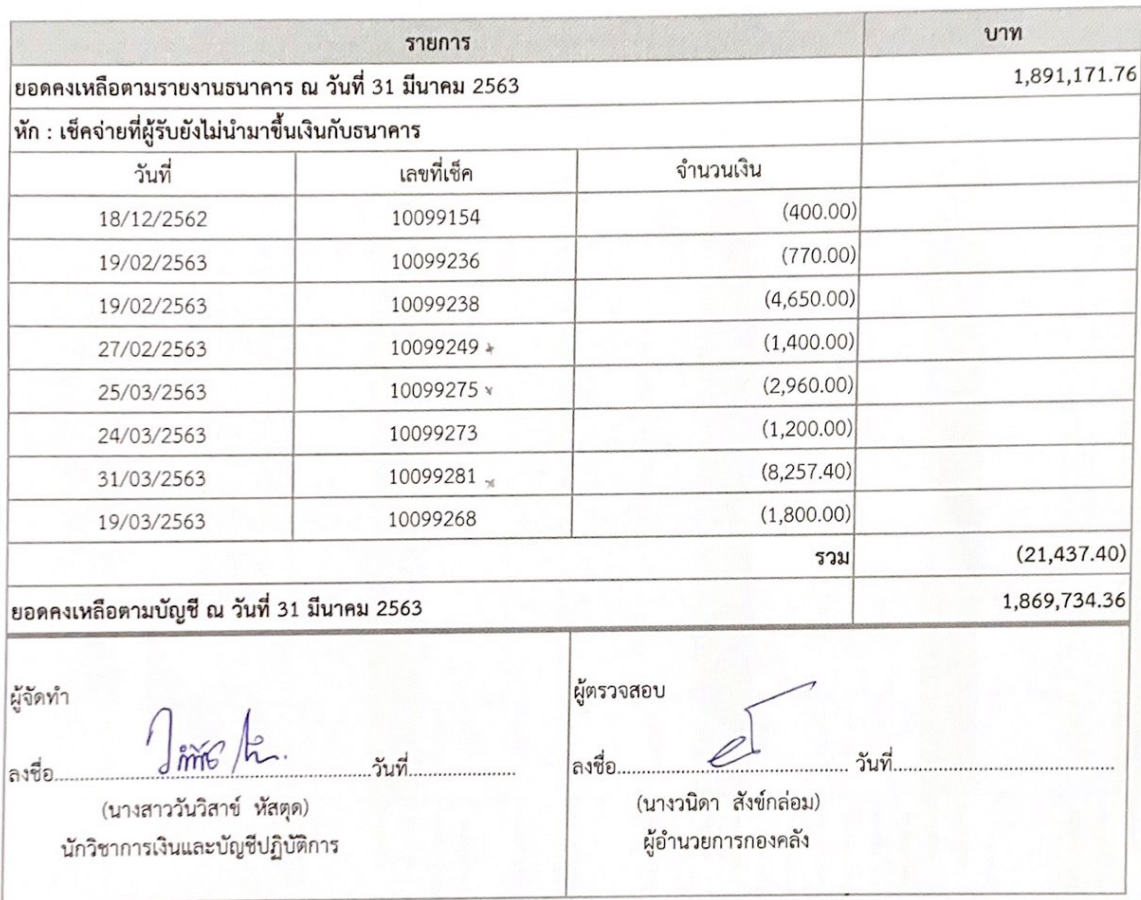 รายการ บาท
ยอดคงเหลือตามรายงานธนาคาร ณ วันที่ 31 มีนาคม 2563 1,891,171.76
หัก : เช็คจ่ายที่ผู้รับยังไม่นำมาขึ้นเงินกับธนาคาร
วันที่ เลขที่เช็ค จำนวนเงิน
18/12/2562 10099154 (400.00)
19/02/2563 10099236 (770.00)
19/02/2563 10099238 (4,650.00)
27/02/2563 10099249 (1,400.00)
25/03/2563 10099275 (2,960.00)
24/03/2563 10099273 (1,200.00)
31/03/2563 10099281 (8,257.40)
19/03/2563 10099268 (1,800.00)
รวม (21,437.40)
ยอดคงเหลือตามบัญชี ณ วันที่ 31 มีนาคม 2563 1,869,734.36
ผู้จัดทำ
ลงชื่อ..........วันที่..........
(นางสาววันวิสาข์ หัสตุด)
นักวิชาการเงินและบัญชีปฏิบัติการ
ผู้ตรวจสอบ
ลงชื่อ..........วันที่..........
(นางวนิดา สังข์กล่อม)
ผู้อำนวยการกองคลัง